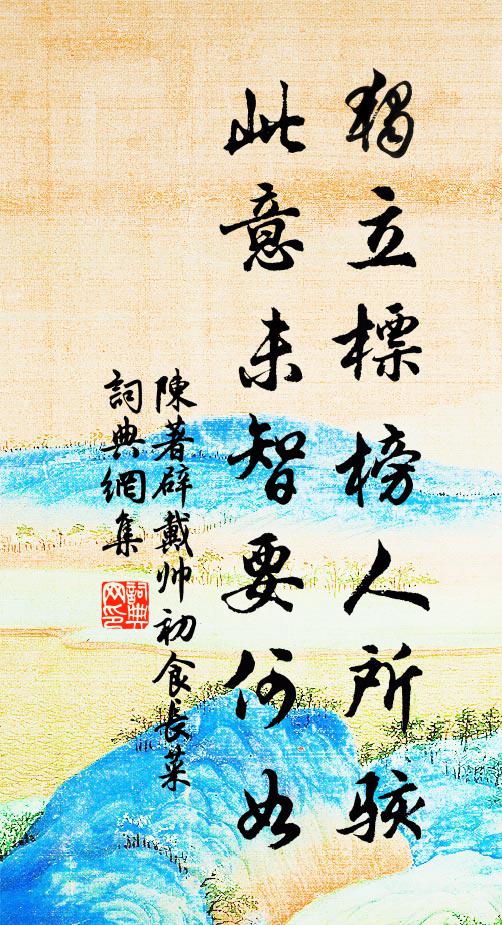 獨立標榜人所駭
此意未智要何如
陳著辟戴帅初食長菜
詞典網集
詞典網印